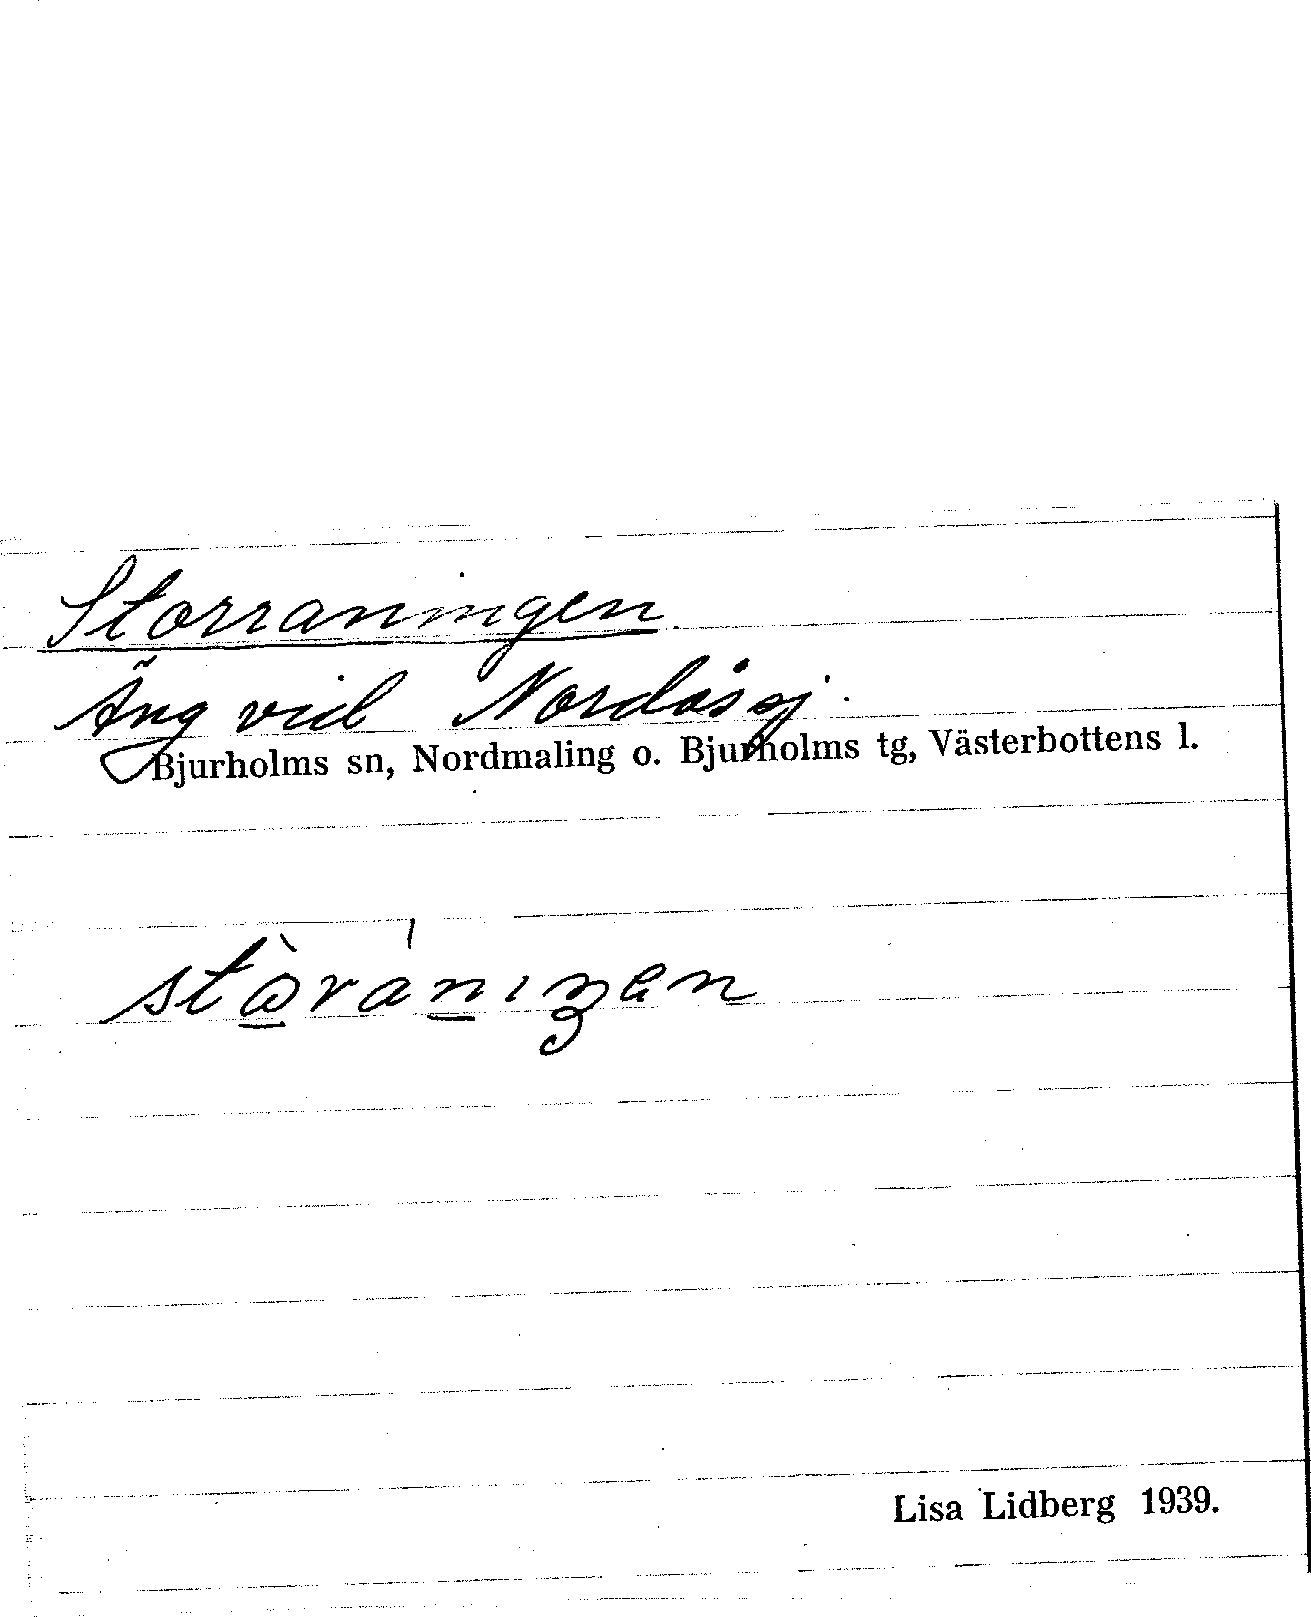 Storraningen.
Äng vid Nordåsj.
Bjurholms sn, Nordmaling o. Bjurholms tg, Västerbottens l.
Lisa Lidberg 1939.